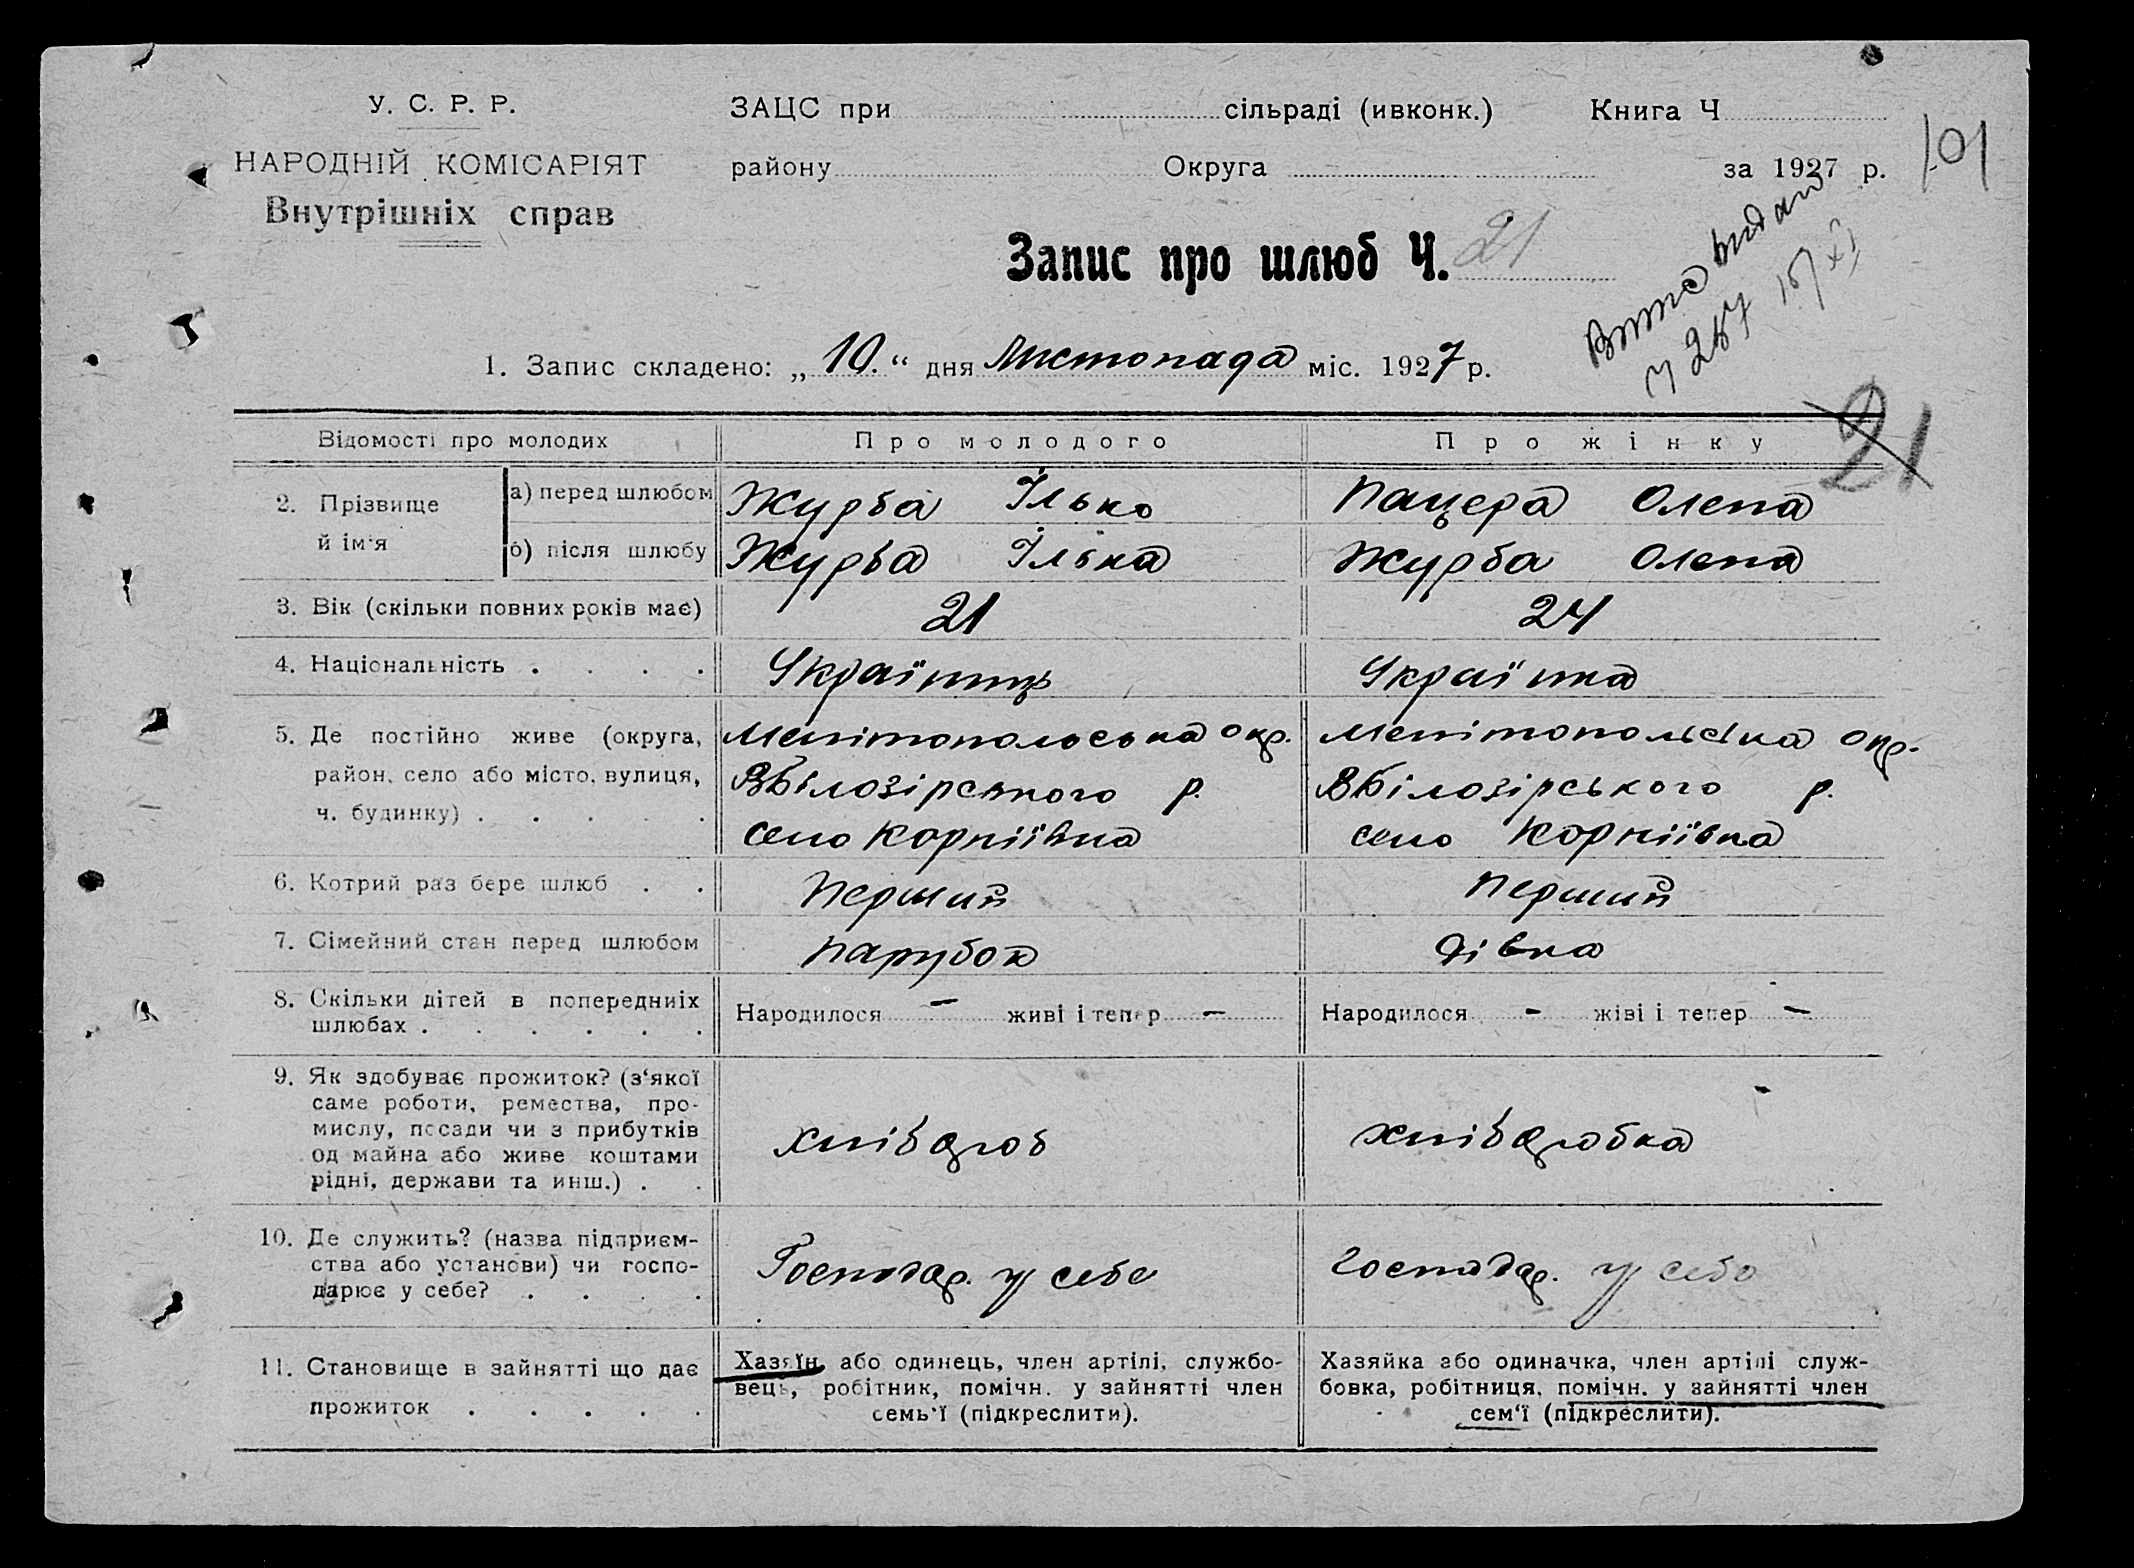 У. С. Р. Р.
НАРОДНІЙ КОМІСАРІЯТ
Внутрішніх справ
ЗАЦС при сільраді (ивконк.) Книга Ч
району Округа за 1927 р.
101
Запис про шлюб Ч. 21
видана
ч 287 15/XI
1. Запис складено: „10.“ дня Листопада міс. 1927 р.
21
Відомості про молодих Про молодого Про жінку
2. Прізвище й ім'я
а) перед шлюбом Журба Ілько Пацера Олена
б) після шлюбу Журба Ілька Журба Олена
3. Вік (скільки повних років має) 21 24
4. Національність . . . . Українць Українка
5. Де постійно живе (округа, Мелітопольська окр. Мелітопольська окр.
район, село або місто, вулиця, ВБілозірського р. ВБілозірського р.
ч. будинку) . . . . . село Корніївка село Корніївка
6. Котрий раз бере шлюб . . Перший Перший
7. Сімейний стан перед шлюбом парубок дівка
8. Скільки дітей в попередниіх Народилося – живі і тепер – Народилося – жіві і тепер –
шлюбах . . . . . .
9. Як здобуває прожиток? (з‘якої
саме роботи, ремества, про-
мислу, посади чи з прибутків хлібороб хліборобка
од майна або живе коштами
рідні, держави та инш.) . .
10. Де служить? (назва підприєм-
ства або установи) чи госпо- Господар. у себе Господар. у себе
дарює у себе? . . . .
11. Становище в зайнятті що дає
прожиток . . . . .
Хазяїн або одинець, член артілі, службо-
вець, робітник, помічн. у зайнятті член
семь'ї (підкреслити).
Хазяйка або одиначка, член артілі служ-
бовка, робітниця, помічн. у зайнятті член
сем‘ї (підкреслити).